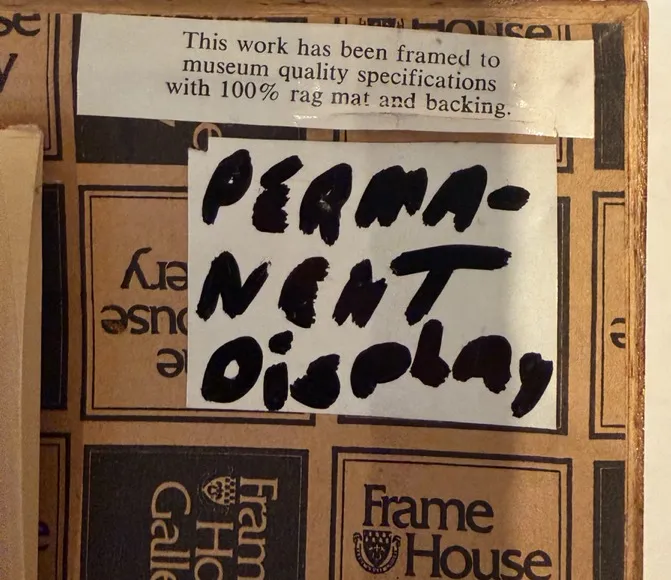 House
This work has been framed to
museum quality specifications
with 100% rag mat and backing.
PERMA-
NENT
DisPLay
Frame
House